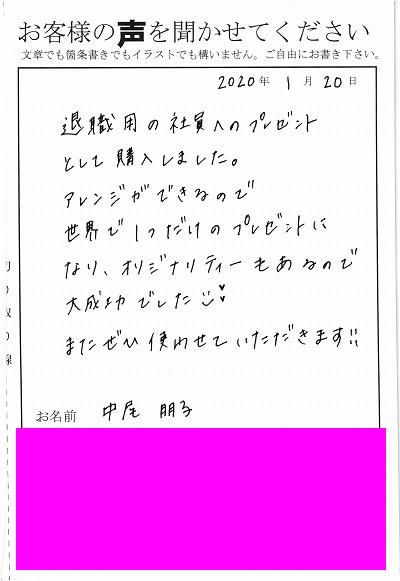 お客様の声を聞かせてください
文章でも箇条書きでもイラストでも構いません。ご自由にお書き下さい。
2020年 1月 20日
退職用の社員へのプレゼント
として購入しました。
アレンジができるので
世界で1つだけのプレゼントに
なり、オリジナリティーもあるので
大成功でした
またぜひ使わせていただきます!!
お名前 中尾 朋子
切り取り線